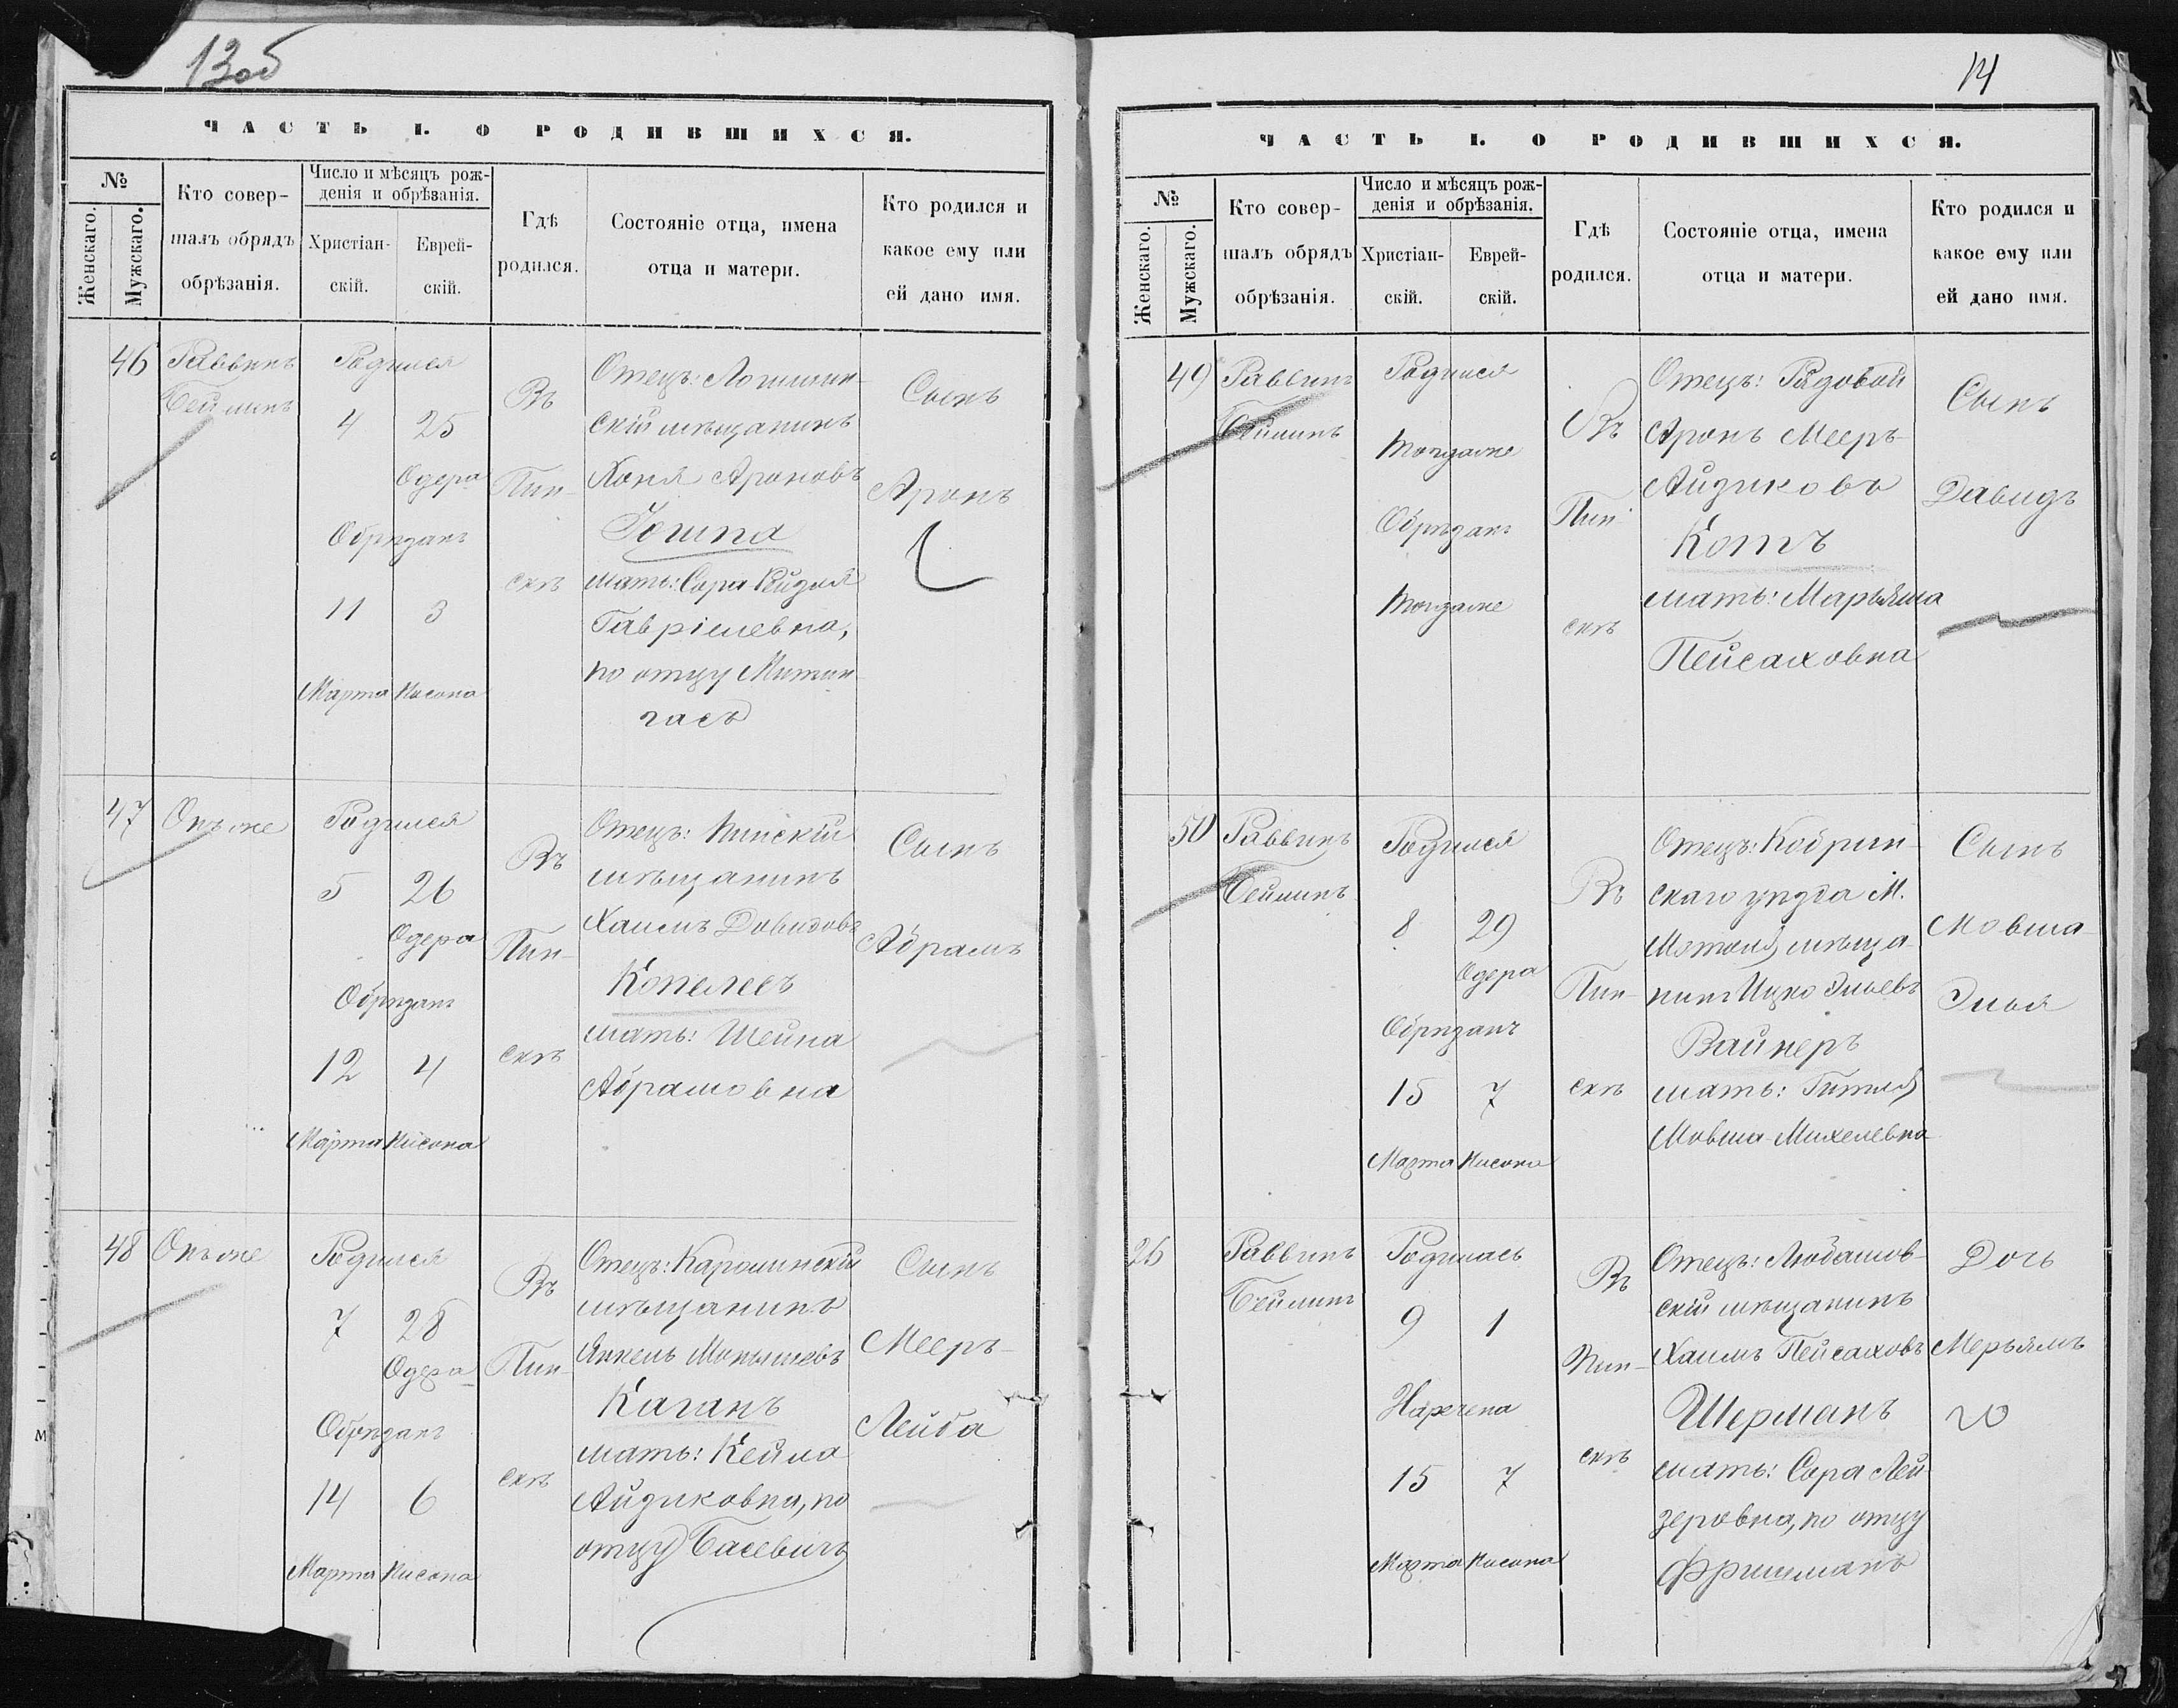 13об
ЧАСТЬ I. О РОДИВШИХСЯ.
№
Женскаго.
Мужскаго.
Кто совер-
шалъ обрядъ
обрѣзанія.
Число и мѣсяцъ рож-
денія и обрѣзанія.
Христіан-
скій.
Еврей-
скій.
Гдѣ
родился.
Состояніе отца, имена
отца и матери.
Кто родился и
какое ему или
ей дано имя.
46
Раввинъ
Бейлинъ
Родился
4 25
Одера
Обрѣзанъ
11 3
Марта Нисона
Въ
Пин-
скѣ
Отецъ: Логишин-
скій мѣщанинъ
Хоня Ароновъ
мать: Сора Рейзля
Гавріелевна,
по отцу
Сынъ
Аронъ
47
Онъ же
Родился
5 26
Одера
Обрѣзанъ
12 4
Марта Нисона
Въ
Пин-
скѣ
Отецъ: Пинскій
мѣщанинъ
Хаимъ Довидовъ
Копелевъ
мать: Шейна
Абрамовна
Сынъ
Абрамъ
48
Онъ же
Родился
7 28
Одера
Обрѣзанъ
14 6
Марта Нисона
Въ
Пин-
скѣ
Отецъ: Каролинскій
мѣщанинъ
Янкель Мовышевъ
Каганъ
мать: Кейла
Айзиковна, по
отцу Басевичъ
Сынъ
Мееръ-
Лейба
14
ЧАСТЬ I. О РОДИВШИХСЯ.
№
Женскаго.
Мужскаго.
Кто совер-
шалъ обрядъ
обрѣзанія.
Число и мѣсяцъ рож-
денія и обрѣзанія.
Христіан-
скій.
Еврей-
скій.
Гдѣ
родился.
Состояніе отца, имена
отца и матери.
Кто родился и
какое ему или
ей дано имя.
49
Раввинъ
Бейлинъ
Родился
тогдаже
Обрѣзанъ
тогдаже
Въ
Пин-
скѣ
Отецъ: Рядовой
Аронъ Мееръ-
Айзиковъ
Котъ
мать: Марьяша
Пейсаховна
Сынъ
Давидъ
50
Раввинъ
Бейлинъ
Родился
8 29
Одера
Обрѣзанъ
15 7
Марта Нисона
Въ
Пин-
скѣ
Отецъ: Кобрин-
скаго уѣзда М.
Мотоля мѣща-
нинъ Ицко Эльевъ
Вайнеръ
мать: Гитля
Мовша-Михелевна
Сынъ
Мовша-
Элья
25
Раввинъ
Бейлинъ
Родилась
9 1
Наречена
15 7
Марта Нисона
Въ
Пин-
скѣ
Отецъ: Любашов-
скій мѣщанинъ
Хаимъ Пейсаховъ
Шерманъ
мать: Сора Лей
зеровна, по отцу
Фришманъ
Дочь
Мерьямъ